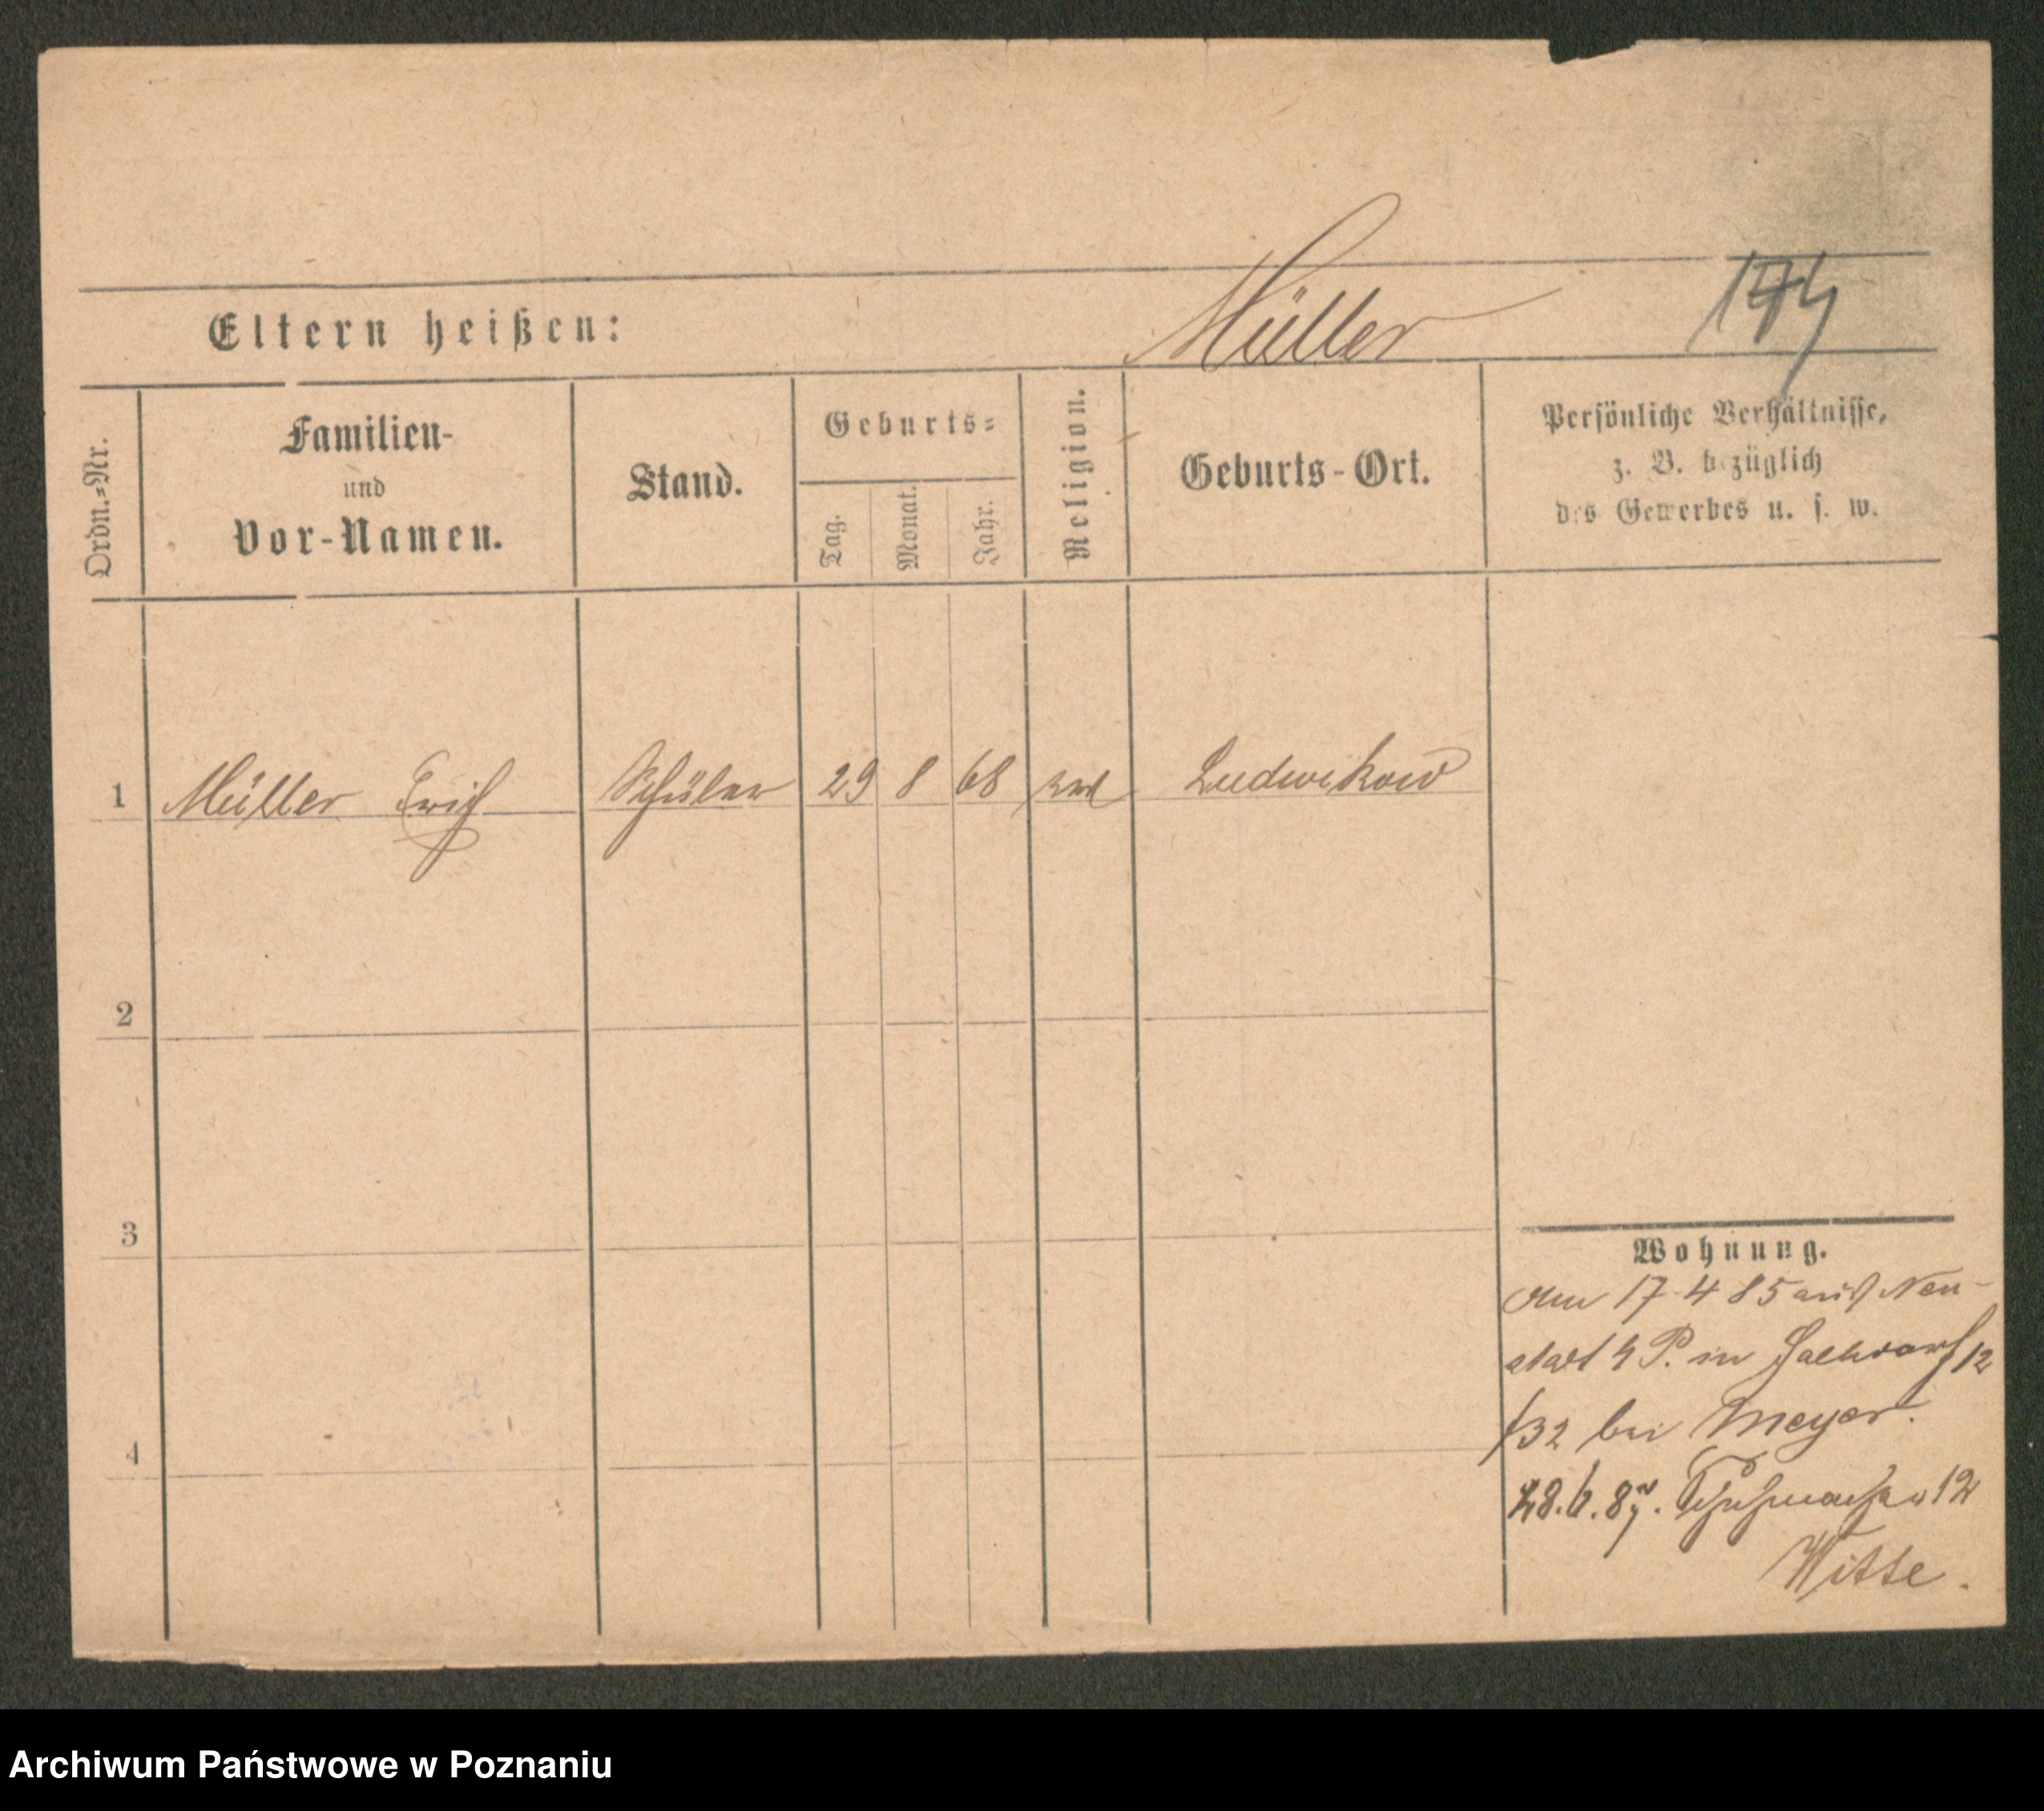 Müller
174
Eltern heißen:
Ordn.=Nr.
Familien-
und
Vor-Namen.
Stand.
Geburts=
Tag.
Monat.
Jahr.
Religion.
Geburts-Ort.
Persönliche Verhältnisse,
z. B. bezüglich
des Gewerbes u. s. w.
1 Müller Erich Schüler 29 8 68 Ludwikowo
2
3
4
Wohnung.
17 4 85 aus Neu-
stadt in 12
/32 bei Meyer.
Schuhmacher 12
Witte.
Archiwum Państwowe w Poznaniu